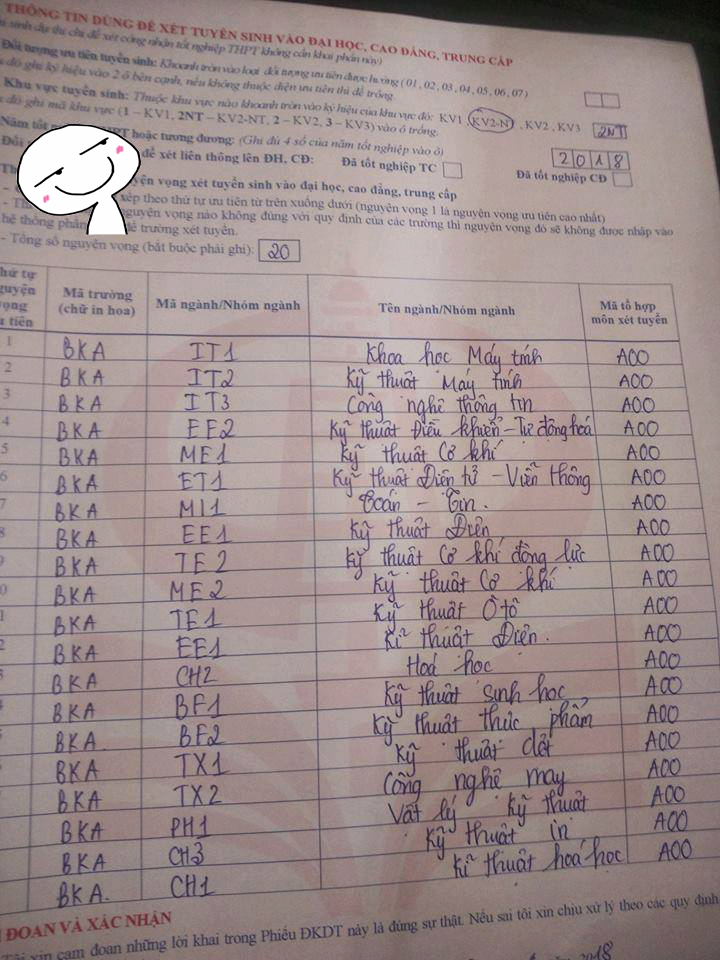 THÔNG TIN DÙNG ĐỂ XÉT TUYỂN SINH VÀO ĐẠI HỌC, CAO ĐẲNG, TRUNG CẤP
sinh dự thi chỉ để xét công nhận tốt nghiệp THPT không cần khai phần này)
Đối tượng ưu tiên tuyển sinh: Khoanh tròn vào loại đối tượng ưu tiên được hưởng (01, 02, 03, 04, 05, 06, 07)
đó ghi ký hiệu vào 2 ô bên cạnh, nếu không thuộc diện ưu tiên thì để trống.
Khu vực tuyển sinh: Thuộc khu vực nào khoanh tròn vào ký hiệu của khu vực đó: KV1, KV2-NT, KV2, KV3
đó ghi mã khu vực (1 – KV1, 2NT – KV2-NT, 2 – KV2, 3 – KV3) vào ô trống. 2NT
Năm tốt PT hoặc tương đương: (Ghi đủ 4 số của năm tốt nghiệp vào ô) 2018
Đối để xét liên thông lên ĐH, CĐ: Đã tốt nghiệp TC Đã tốt nghiệp CĐ
vọng xét tuyển sinh vào đại học, cao đẳng, trung cấp
xếp theo thứ tự ưu tiên từ trên xuống dưới (nguyện vọng 1 là nguyện vọng ưu tiên cao nhất)
nguyện vọng nào không đúng với quy định của các trường thì nguyện vọng đó sẽ không được nhập vào
hệ thống phần để trường xét tuyển.
- Tổng số nguyện vọng (bắt buộc phải ghi): 20
Thứ tự nguyện vọng ưu tiên Mã trường (chữ in hoa) Mã ngành/Nhóm ngành Tên ngành/Nhóm ngành Mã tổ hợp môn xét tuyển
1 BKA IT1 Khoa học Máy tính A00
2 BKA IT2 Kỹ thuật Máy tính A00
3 BKA IT3 Công nghệ thông tin A00
4 BKA EE2 Kỹ thuật Điều khiển - Tự động hoá A00
5 BKA ME1 Kỹ thuật Cơ khí A00
6 BKA ET1 Kỹ thuật Điện tử - Viễn thông A00
7 BKA MI1 Toán - Tin. A00
8 BKA EE1 Kỹ thuật Điện A00
9 BKA TE2 Kỹ thuật Cơ khí động lực A00
0 BKA ME2 Kỹ thuật Cơ khí A00
1 BKA TE1 Kỹ thuật Ô tô A00
2 BKA EE1 Kĩ thuật Điện. A00
3 BKA CH2 Hoá học A00
BKA BF1 Kỹ thuật sinh học A00
BKA BF2 Kỹ thuật thực phẩm A00
BKA TX1 Kỹ thuật dệt A00
BKA TX2 Công nghệ may A00
BKA PH1 Vật lý kỹ thuật A00
BKA CH3 Kỹ thuật in A00
BKA. CH1 Kĩ thuật hoá học A00
ĐOAN VÀ XÁC NHẬN
Tôi xin cam đoan những lời khai trong Phiếu ĐKDT này là đúng sự thật. Nếu sai tôi xin chịu xử lý theo các quy định
2018